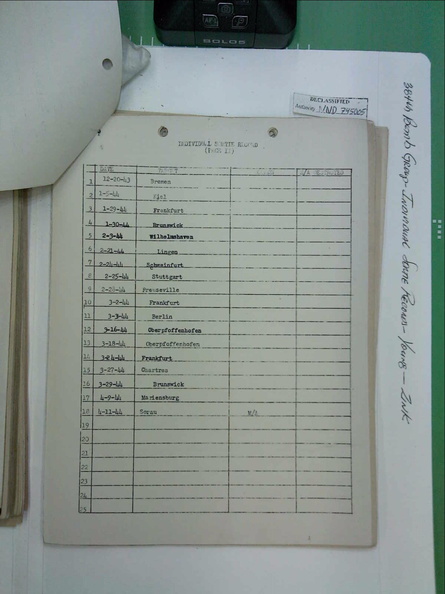 SOLOS
DECLASSIFIED
Authority NND 745005
384th Bomb Group - Individual Sortie Record - Young - Zink
INDIVIDUAL SORTIE RECORD
(PAGE 1)
DATE
1 12-20-43 Bremen
2 1-5-44 Kiel
3 1-29-44 Frankfurt
4 1-30-44 Brunswick
5 2-3-44 Wilhelmshaven
6 2-21-44 Lingen
7 2-24-44 Schweinfurt
8 2-25-44 Stuttgart
9 2-28-44
10 3-2-44 Frankfurt
11 3-3-44 Berlin
12 3-16-44 Oberpfoffenhofen
13 3-18-44 Oberpfoffenhofen
14 3-24-44 Frankfurt
15 3-27-44 Chartres
16 3-29-44 Brunswick
17 4-9-44 Mariensburg
18 4-11-44 Sorau
19
20
21
22
23
24
25